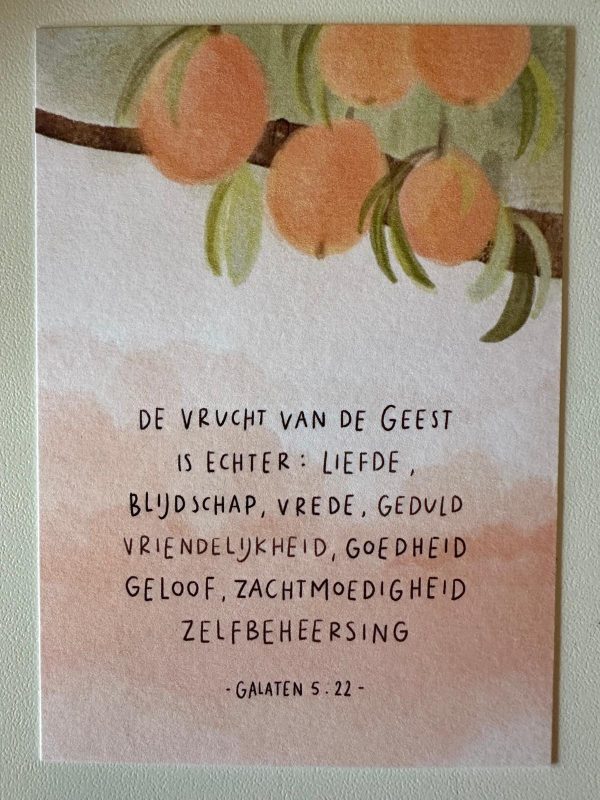 DE VRUCHT VAN DE GEEST
IS ECHTER: LIEFDE,
BLIJDSCHAP, VREDE, GEDULD
VRIENDELIJKHEID, GOEDHEID
GELOOF, ZACHTMOEDIGHEID
ZELFBEHEERSING
- GALATEN 5:22 -